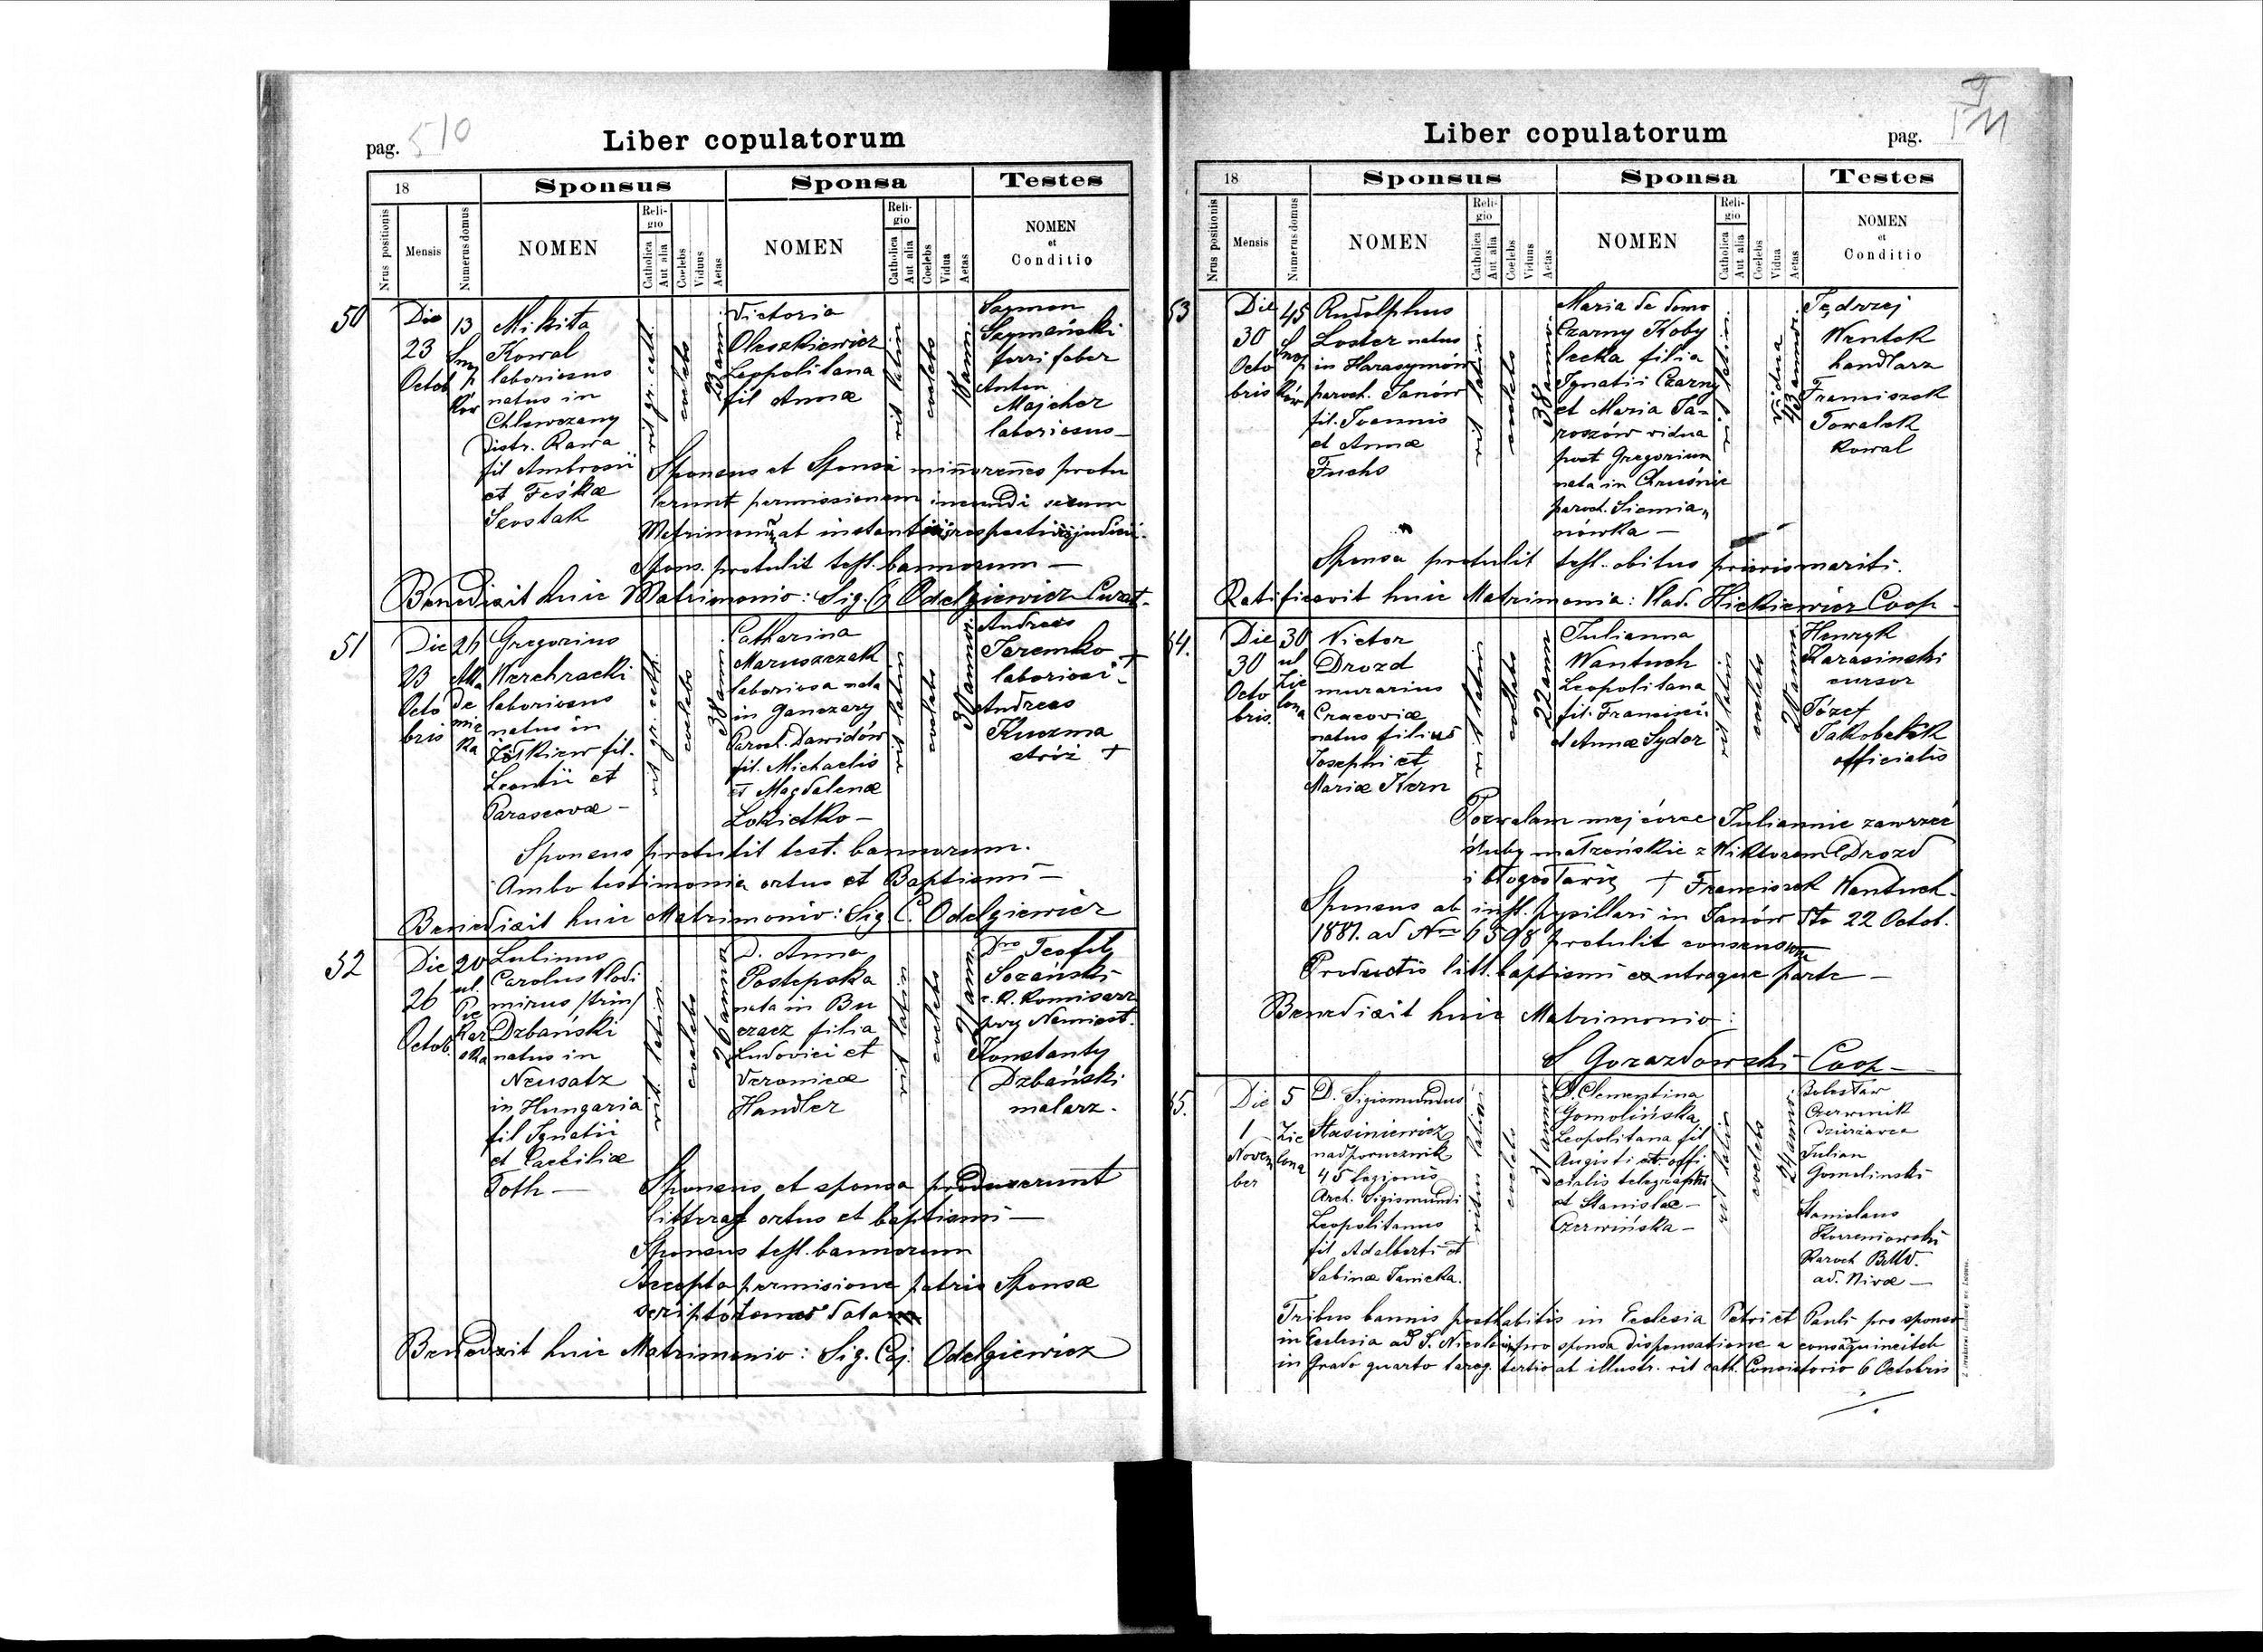 pag. 510
Liber copulatorum
18
Sponsus
Sponsa
Testes
Nrus positionis
Mensis
Numerus domus
NOMEN
Religio
Catholica
Aut alia
Coelebs
Viduus
Aetas
NOMEN
Religio
Catholica
Aut alia
Coelebs
Vidua
Aetas
NOMEN
et
Conditio
50
Die
23
Octob
13
Mikita
Kowal
laboriosus
natus in
Chlewczany
Distr. Rawa
fil Ambrosii
et Feśkæ
rit gr. cath.
coelebs
23 anni
Victoria
Oleszkiewicz
Leopolitana
fil Annæ
rit latin
coelebs
18 anni
Szymon
Szymański
ferri faber
Anton
Majcher
laboriosus
Sponsus et Sponsa minorennes protu
lerunt permissionem ineundi secum
Spons. protulit test. bannorum —
Benedixit huic Matrimonio: Sig. C Odelgiewicz Curat.
51
Die
23
Octo
bris
Gregorius
Werchracki
laboriosus
natus in
Żółkiew fil.
Leontii et
Parascevæ —
rit gr. cath.
coelebs
38 anni
Catharina
Maruszczak
laboriosa nata
in Ganczary
Paroch. Dawidów
fil. Michaelis
et Magdalenæ
Łokietko —
rit latin
coelebs
30 annor.
Andreas
Jaremko +
laboriosi
Andreas
Kuzma
stróż +
Sponsus protulit test. bannorum.
Ambo testimonia ortus et Baptismi —
Benedixit huic Matrimonio: Sig C. Odelgiewicz
52
Die
26
Octob.
20
ul.
Pie
kar
ska
Julianus
Carolus Vlodi
mirus /trin/
Dzbański
natus in
Neusatz
in Hungaria
fil Ignatii
et Caeciliæ
Toth —
coelebs
26 annor
D. Anna
Postepska
nata in Bu
czacz filia
Ludovici et
Veronicæ
Handler
rit latin
coelebs
21 anni
Dro Teofil
Sozański
c. k. komisarz
przy Namiest.
Konstanty
Dzbański
malarz.
Sponsus et sponsa produxerunt
litteras ortus et baptismi —
Sponsus test. bannorum
Accepta permisione patris Sponsæ
Benedixit huic Matrimonio: Sig. Caj. Odelgiewicz
Liber copulatorum
pag.
18
Sponsus
Sponsa
Testes
Nrus positionis
Mensis
Numerus domus
NOMEN
Religio
Catholica
Aut alia
Coelebs
Viduus
Aetas
NOMEN
Religio
Catholica
Aut alia
Coelebs
Vidua
Aetas
NOMEN
et
Conditio
53
Die
30
Octo
bris
45
Rudolphus
Loster natus
in Harasymów
paroch. Janów
fil. Joannis
et Annæ
Fuchs
rit latin
coelebs
38 annor.
Maria de domo
Czarny Koby
lecka filia
Ignatii Czarny
et Maria Ja-
roszów vidua
post Gregorium
nata in Chruśnie
paroch. Siemia„
nówka —
rit latin
vidua
43 annor.
Jędrzej
Wentok
handlarz
Franciszek
Towalek
kowal
Sponsa protulit test. obitus prioris mariti.
Ratificavit huic Matrimonia: Vlad. Hickiewicz Coop
54.
Die
30
Octo
bris
30
ul
Zie
lona
Victor
Drozd
murarius
Cracoviæ
natus filius
Josephi et
Mariæ Kern
rit latin
coelebs
22 anni
Julianna
Wantuch
Leopolitana
fil. Francisci
et Annæ Sydor
rit latin
coelebs
21 anni
Henryk
Karasinski
cursor
Józef
officialis
Pozwalam mej córce Juliannie zawrzeć
śluby małżeńskie z Wiktorem Drozd
i błogosławię + Franciszek Wantuch
Sponsus ab inst. pupillari in Janów dto 22 Octob.
1887. ad Nrm 6598 protulit consensum
Productis litt. baptismi ex utraque parte —
Benedixit huic Matrimonio:
S Gorazdowski Coop —
55.
Die
1
Novem
ber
5
Zie
lona
D. Sigismundus
Stasiniewicz
nadporucznik
45 legionis
Arch. Sigismundi
Leopolitanus
fil Adalberti et
Sabinæ Janicka.
ritus latin
coelebs
31 annor
D. Clementina
Gomolińska
Leopolitana fil
Augusti et offi
cialis telegraphi
et Stanislæ —
Czerwińska —
rit latin
coelebs
24 annor.
Bolesław
Czerwinik
dzierżawca
Julian
Gomolinski
Stanislaus
Korzeniowski
Paroch BMV.
ad. Nivæ —
Tribus bannis posthabitis in Eclesia Petri et Pauli pro sponso
in Eclesia ad S. Nicolaum pro sponsa dispensatione a
in Grado quarto tertio ab illustr. rit cath. Consistorio 6 Octobris